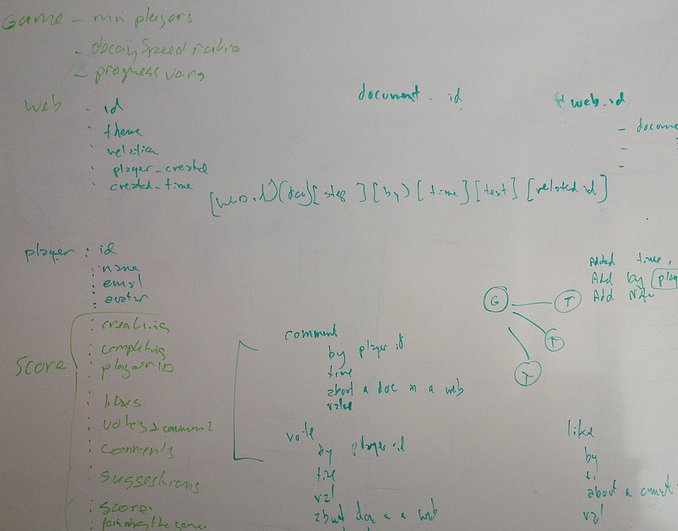 Game - min players
- decay speed ratio
- progress vars
web . id
. theme
. relation
. player_created
. created_time
document . id
web_id
- docume
-
-
[web.id] [doc] [step] [by] [time] [text] [related id]
player : id
: name
: email
: avatar
Score
: creating
: completing
: player ID
: likes
: votes
: comments
: suggestions
: score
comment
by player id
time
about a doc in a web
value
vote
by player id
time
val
about doc in a web
G
T
T
T
Added time,
Add by play
Add
like
by
ti
about a
val